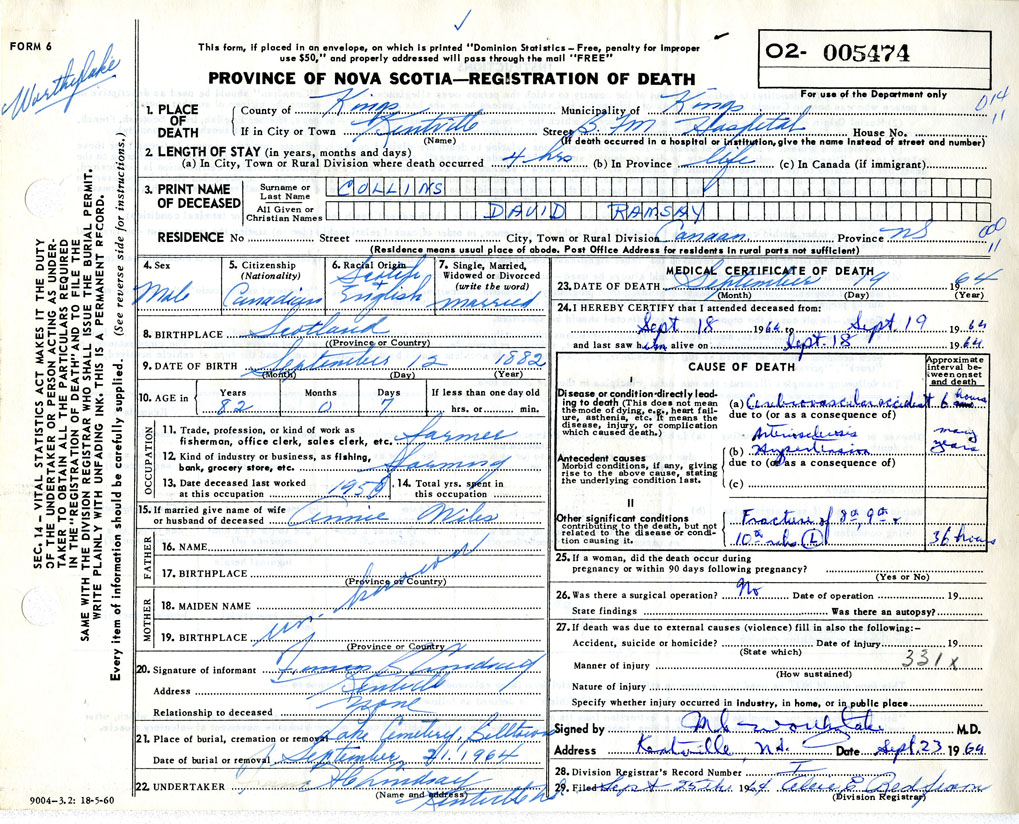 FORM 6
Worthylake
This form, if placed in an envelope, on which is printed "Dominion Statistics – Free, penalty for improper
use $50," and properly addressed will pass through the mail "FREE"
PROVINCE OF NOVA SCOTIA—REGISTRATION OF DEATH
O2- 005474
For use of the Department only
014
11
1. PLACE OF DEATH
County of Kings Municipality of Kings
If in City or Town Kentville Street B.F.M. Hospital House No.
(Name) (If death occurred in a hospital or institution, give the name instead of street and number)
2. LENGTH OF STAY (in years, months and days)
(a) In City, Town or Rural Division where death occurred 4 hrs (b) In Province life (c) In Canada (if immigrant)
3. PRINT NAME OF DECEASED
Surname or Last Name COLLINS
All Given or Christian Names DAVID RAMSAY
RESIDENCE No Street City, Town or Rural Division Canaan Province NS
000
11
(Residence means usual place of abode. Post Office Address for residents in rural parts not sufficient)
4. Sex
Male
5. Citizenship
(Nationality)
Canadian
6. Racial Origin
Scotish + English
7. Single, Married,
Widowed or Divorced
(write the word)
married
8. BIRTHPLACE Scotland
(Province or Country)
9. DATE OF BIRTH September 12 1882
(Month) (Day) (Year)
10. AGE in Years Months Days If less than one day old
82 0 7 hrs. or min.
OCCUPATION
11. Trade, profession, or kind of work as
fisherman, office clerk, sales clerk, etc. farmer
12. Kind of industry or business, as fishing,
bank, grocery store, etc. Farming
13. Date deceased last worked
at this occupation 1950
14. Total yrs. spent in
this occupation
15. If married give name of wife
or husband of deceased Annie Miles
FATHER
16. NAME
17. BIRTHPLACE
(Province or Country)
MOTHER
18. MAIDEN NAME
19. BIRTHPLACE
un-known
(Province or Country)
20. Signature of informant
Address Kentville
Relationship to deceased none
21. Place of burial, cremation or removal Lake Cemetery, Billtown
Date of burial or removal September 21. 1964
22. UNDERTAKER Lindsay
(Name and address) Kentville N.S.
MEDICAL CERTIFICATE OF DEATH
23. DATE OF DEATH September 19 1964
(Month) (Day) (Year)
24. I HEREBY CERTIFY that I attended deceased from:
Sept 18 1964 to Sept. 19 1964
and last saw him alive on Sept. 18 1964.
CAUSE OF DEATH
Approximate interval between onset and death
I
Disease or condition directly leading to death (This does not mean the mode of dying, e.g., heart failure, asthenia, etc. It means the disease, injury, or complication which caused death.)
(a) Cerebrovascular accident 6 hours
due to (or as a consequence of)
Antecedent causes
Morbid conditions, if any, giving rise to the above cause, stating the underlying condition last.
Arteriosclerosis
(b) Hypertension many years
due to (or as a consequence of)
(c)
II
Other significant conditions
contributing to the death, but not related to the disease or condition causing it.
Fracture of 8th, 9th +
10th ribs (L) 36 hours
25. If a woman, did the death occur during
pregnancy or within 90 days following pregnancy?
(Yes or No)
26. Was there a surgical operation? No Date of operation 19
State findings Was there an autopsy?
27. If death was due to external causes (violence) fill in also the following:–
Accident, suicide or homicide? Date of injury 19
(State which)
331x
Manner of injury
(How sustained)
Nature of injury
Specify whether injury occurred in industry, in home, or in public place
Signed by M.D.
Address Kentville, N.S. Date Sept. 23 1964
28. Division Registrar's Record Number
29. Filed Sept 25th 1964
(Division Registrar)
SEC. 14 – VITAL STATISTICS ACT MAKES IT THE DUTY
OF THE UNDERTAKER OR PERSON ACTING AS UNDER-
TAKER TO OBTAIN ALL THE PARTICULARS REQUIRED
IN THE "REGISTRATION OF DEATH" AND TO FILE THE
SAME WITH THE DIVISION REGISTRAR WHO SHALL ISSUE THE BURIAL PERMIT.
WRITE PLAINLY WITH UNFADING INK. THIS IS A PERMANENT RECORD.
Every item of information should be carefully supplied. (See reverse side for instructions.)
9004–3.2: 18-5-60